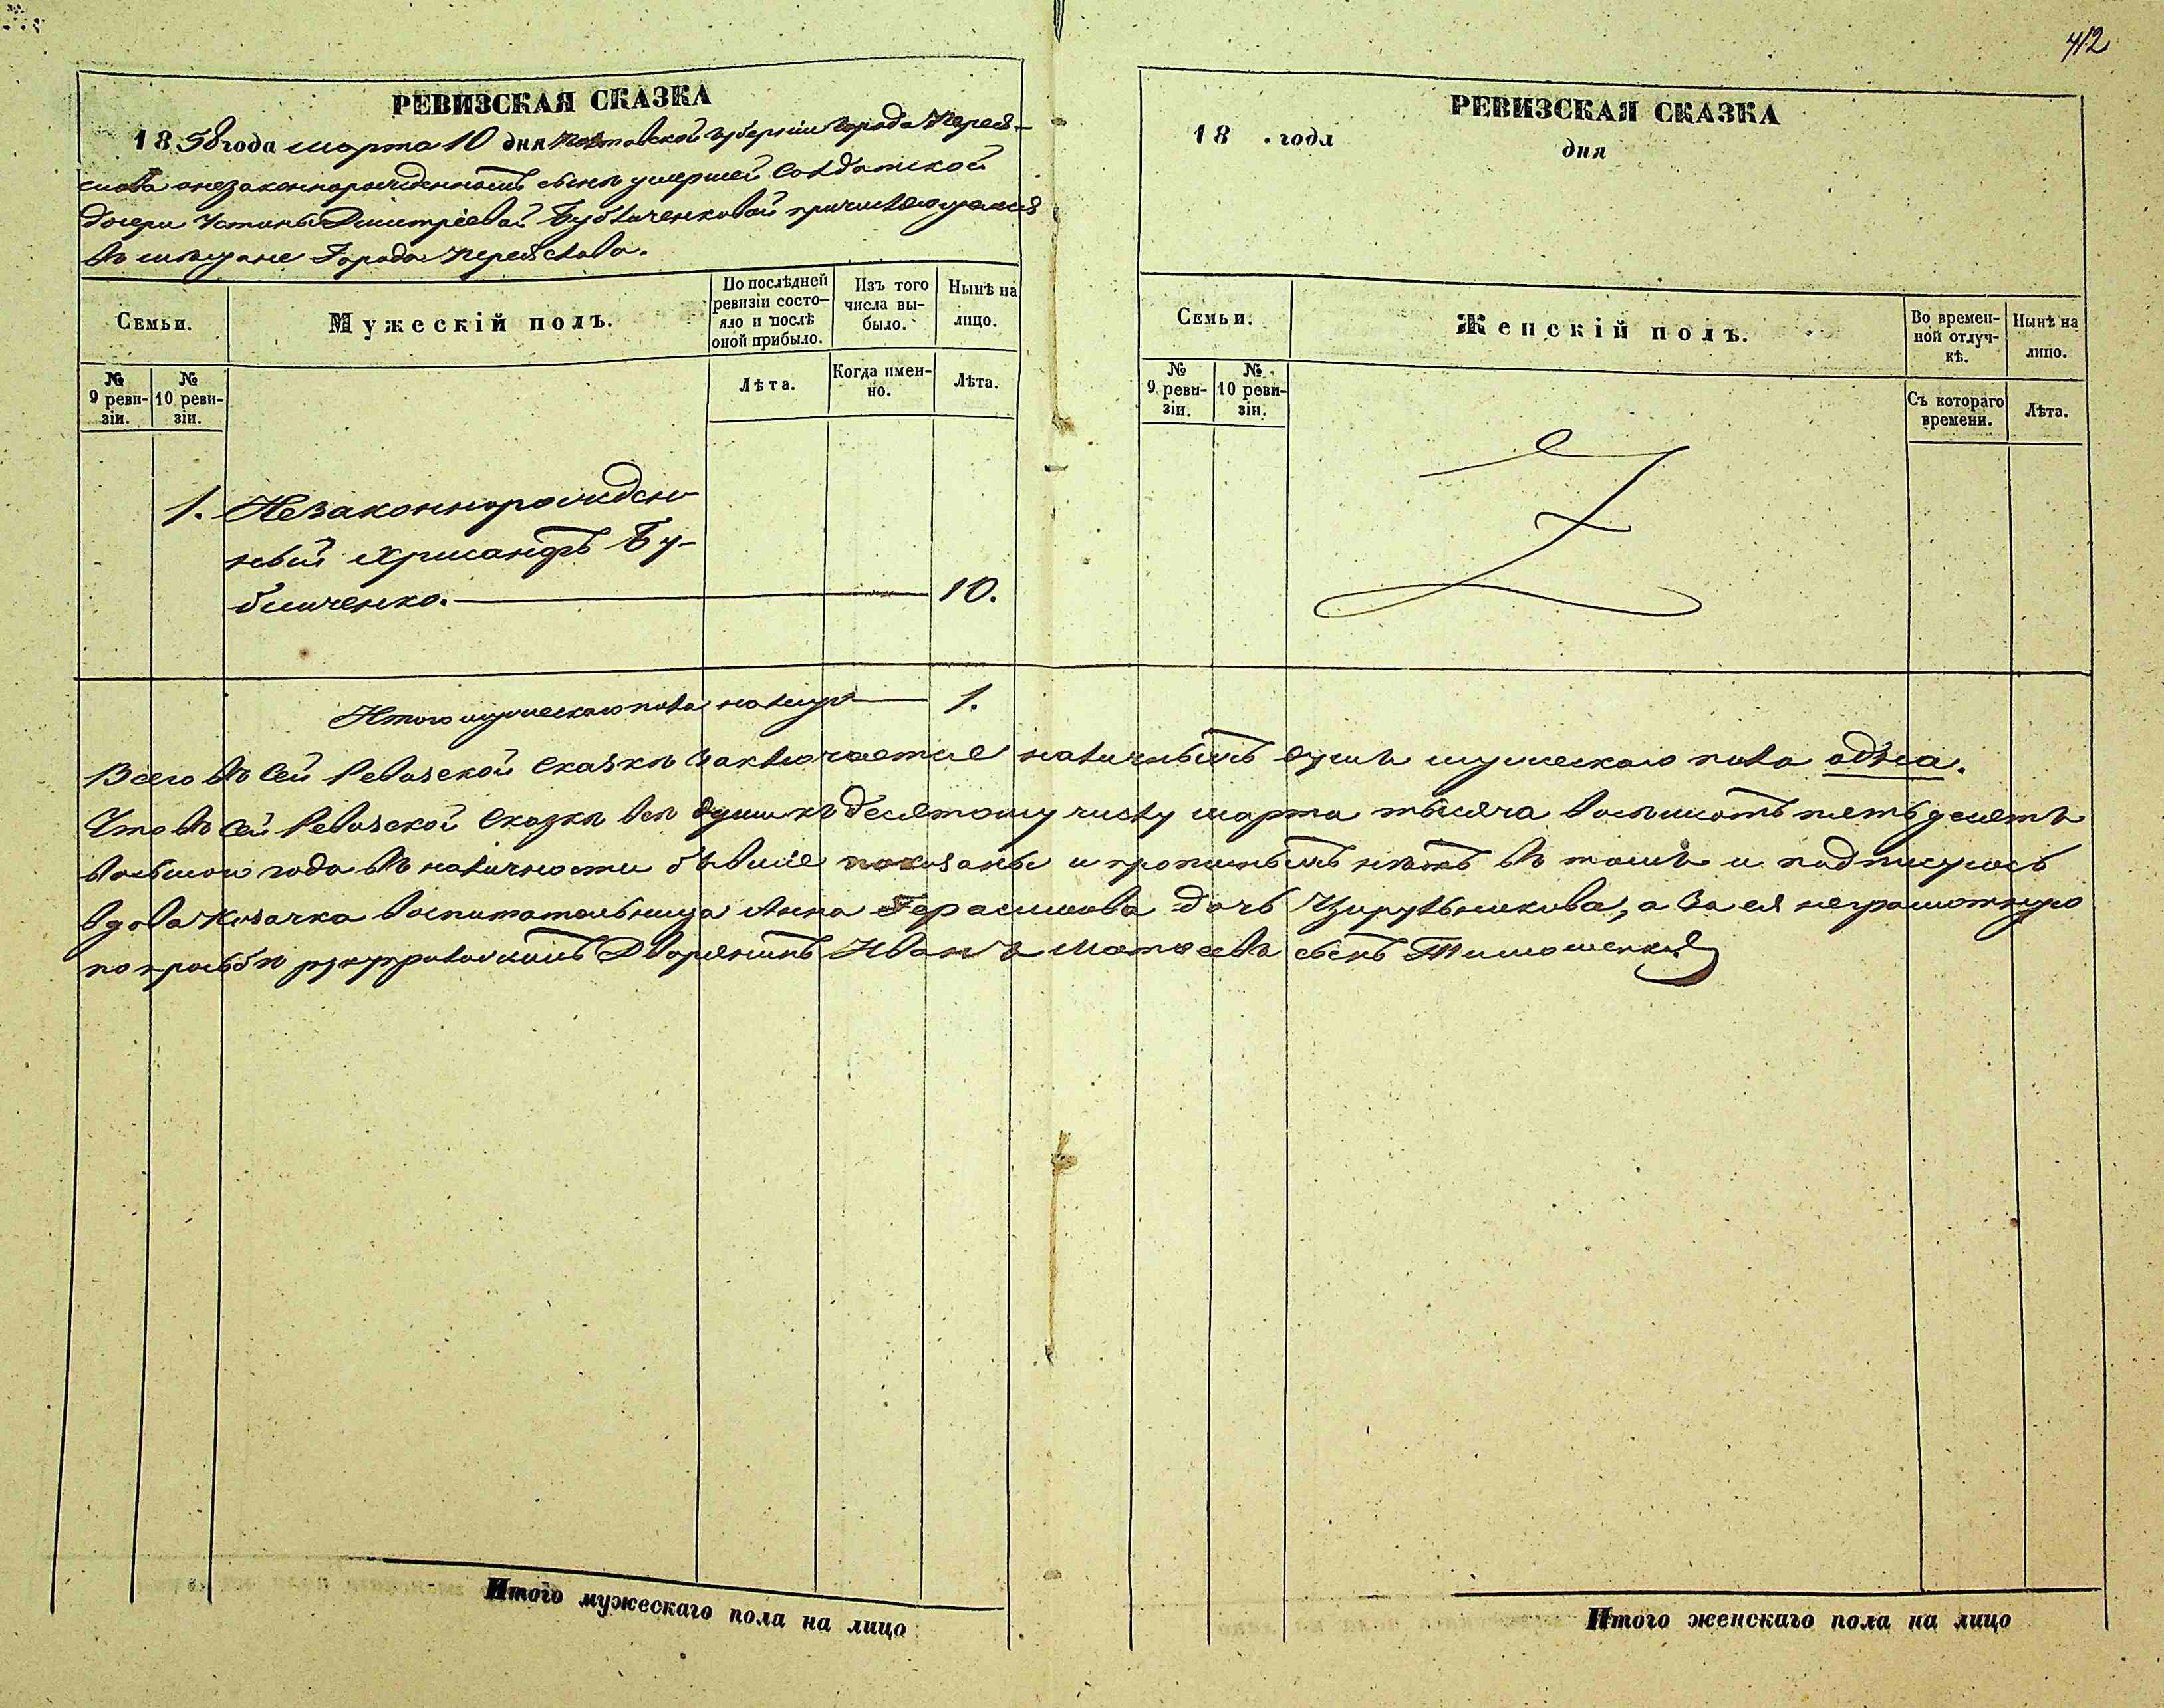 412
РЕВИЗСКАЯ СКАЗКА
1858 года марта 10 дня Полтавской губерніи города Перея-
слова онезаконнорожденномъ сынѣ умершей солдатской
дочери Устиньи Дмитріевой причисляющемся
въ мѣщане города Переяслова.
Семьи.
Мужескій полъ.
По послѣдней ревизіи состояло и послѣ оной прибыло.
Изъ того числа выбыло.
Нынѣ на лицо.
№ 9 ревизіи.
№ 10 ревизіи.
Лѣта.
Когда именно.
Лѣта.
1. Незаконнорожден-
ный Хрисанфъ Бу-
бличенко. 10.
Итого мужескаго пола налицо 1.
РЕВИЗСКАЯ СКАЗКА
18 . года дня
Семьи.
Женскій полъ.
Во временной отлучкѣ.
Нынѣ на лицо.
№ 9 ревизіи.
№ 10 ревизіи.
Съ котораго времени.
Лѣта.
Всего въ сей Ревизской сказкѣ заключается наличныхъ душъ мужескаго пола одна.
Что въ сей Ревизской сказкѣ всѣ души къ десятому числу марта тысяча восемьсотъ пятьдесятъ
восьмого года въ наличности бывшіе показаны и прописныхъ нѣтъ въ томъ и подписуюсь
вдова Козачка воспитательница Анна Герасимова дочь Цирульникова, а за ея неграмотную
по просьбѣ Дворянинъ Иванъ Матвеевъ сынъ Тимошенко
Итого мужескаго пола на лицо
Итого женскаго пола на лицо